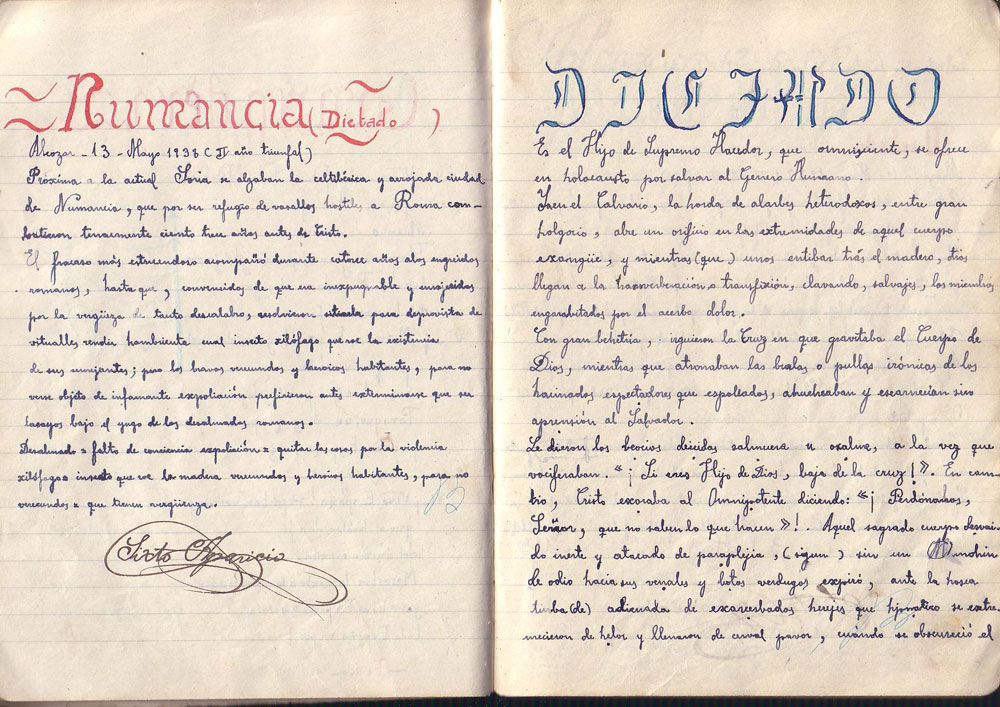 Numancia (Dictado)
Alcozar - 13 - Mayo 1938 (II año triunfal)
Próxima a la actual Soria se alzaban la celtibérica y arrojada ciudad
de Numancia, que por ser refugio de vasallos hostiles a Roma com-
batieron tenazmente ciento trece años antes de Cristo.
El fracaso más estruendoso acompañó durante catorce años alos engreidos
romanos, hasta que, convenidos de que era inexpugnable y enojecidos
por la vergüeza de tanto descalabro, resolvieron sitiarla para deprovista de
vituallas rendir hambrienta cual insecto xilófago que roe la existencia
de sus semejantes; pero los bravos verecundos y heroicos habitantes, para no
verse objeto de infamante expoliación prefirieron antes exterminarse que ser
lacayos bajo el yugo de los desalmados romanos.
Desalmado = falto de conciencia expoliación = quitar las cosas por la violencia
xilófago = insecto que roe la madera verecundos y heroicos habitantes, para no
verecundos = que tienen vergüenza.
12
Sixto Aparicio
DICTADO
Es el Hijo de Supremo Hacedor, que omnisciente, se ofrece
en holocausto por salvar al Genero Humano.
Yaen el Calvario, la horda de alarbes heterodoxos, entre gran
holgorio, abre un orificio en las extremidades de aquel cuerpo
exangüe, y mientras (que) unos entibar trás el madero, otros
llegan a la transverberación o transfixión, clavando, salvajes, los miembros
engarabitados por el acerbo dolor.
Con gran behetria, irguieron la Cruz en que gravitaba el Cuerpo de
Dios, mientras que atronaban las burlas o pullas irónicas de los
hacinados espectadores que espoleados, ahucheaban y escarnecian sin
aprensión al Salvador.
Le dieron los beocios deicidas salmuera u oxalme, a la vez que
vociferaban. "¡Si eres Hijo de Dios, baja de la cruz!». En cam-
bio, Cristo exoraba al Omnipotente diciendo: "¡ Perdónalos,
Señor, que no saben lo que hacen»!. Aquel sagrado cuerpo
do inerte y atacado de paraplejia, (sigun) sin un
de odio hacia sus venales y botos verdugos expiró, ante la hosca
turba (de) adienada de exacerbados herejes que se extre-
mecieron de helor y llenaron de cerval pavor, cuándo se obscureció el